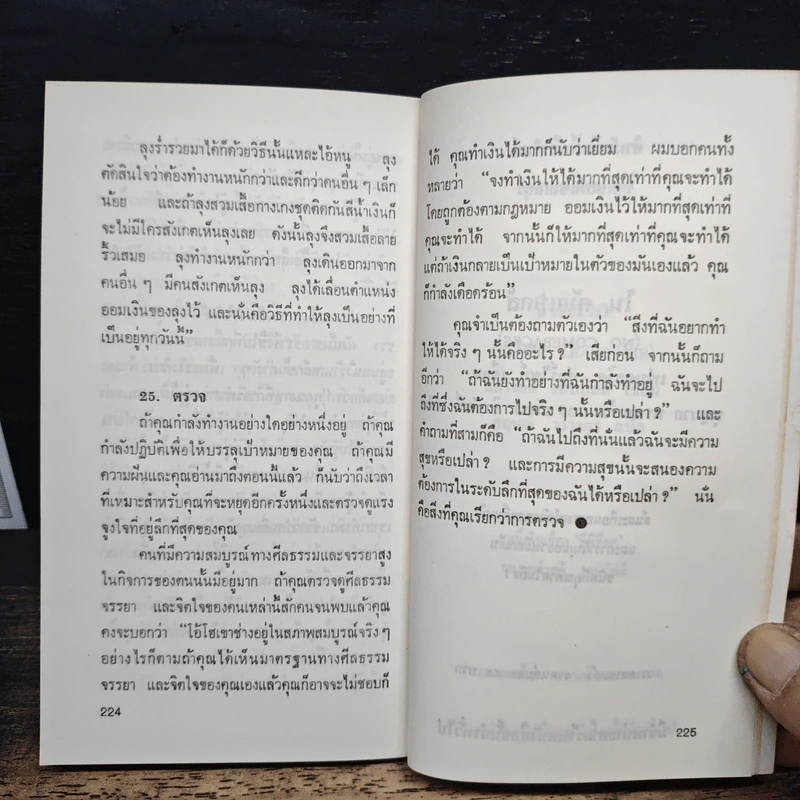 ลุงร่ำรวยมาได้ก็ด้วยวิธีนั้นแหละไอ้หนู ลุง
ตัดสินใจว่าต้องทำงานหนักกว่าและดีกว่าคนอื่น ๆ เล็ก
น้อย และถ้าลงสวมเสื้อกางเกงชุดติดกันสีน้ำเงินก็
จะไม่มีใครสังเกตเห็นลุงเลย ดังนั้นลุงจึงสวมเสื้อลาย
ริ้วเสมอ ลุงทำงานหนักกว่า ลุงเดินออกมาจาก
คนอื่น ๆ มีคนสังเกตเห็นลุง ลุงได้เลื่อนตำแหน่ง
ออมเงินของลุงไว้ และนั่นคือวิธีที่ทำให้ลุงเป็นอย่างที่
เป็นอยู่ทุกวันนี้”
25. ตรวจ
ถ้าคุณกำลังทำงานอย่างใดอย่างหนึ่งอยู่ ถ้าคุณ
กำลังปฏิบัติเพื่อให้บรรลุเป้าหมายของคุณ ถ้าคุณมี
ความฝันและคุณอ่านมาถึงตอนนี้แล้ว ก็นับว่าถึงเวลา
ที่เหมาะสำหรับคุณที่จะหยุดอีกครั้งหนึ่งและตรวจดูแรง
จูงใจที่อยู่ลึกที่สุดของคุณ
คนที่มีความสมบูรณ์ทางศีลธรรมและจรรยาสูง
ในกิจการของตนนั้นมีอยู่มาก ถ้าคุณตรวจดูศีลธรรม
จรรยา และจิตใจของคนเหล่านี้สักคนจนพบแล้วคุณ
คงจะบอกว่า “โอ้โฮเขาช่างอยู่ในสภาพสมบูรณ์จริง ๆ
อย่างไรก็ตามถ้าคุณได้เห็นมาตรฐานทางศีลธรรม
จรรยา และจิตใจของคุณเองแล้วคุณก็อาจจะไม่ชอบก็
224
ได้ คุณทำเงินได้มากก็นับว่าเยี่ยม ผมบอกคนทั้ง
หลายว่า “จงทำเงินให้ได้มากที่สุดเท่าที่คุณจะทำได้
โดยถูกต้องตามกฎหมาย ออมเงินไว้ให้มากที่สุดเท่าที่
คุณจะทำได้ จากนั้นก็ให้มากที่สุดเท่าที่คุณจะทำได้
แต่ถ้าเงินกลายเป็นเป้าหมายในตัวของมันเองแล้ว คุณ
ก็กำลังเดือดร้อน”
คุณจำเป็นต้องถามตัวเองว่า “สิ่งที่ฉันอยากทำ
ให้ได้จริง ๆ นั้นคืออะไร ?” เสียก่อน จากนั้นก็ถาม
อีกว่า “ถ้าฉันยังทำอย่างที่ฉันกำลังทำอยู่ ฉันจะไป
ถึงที่ซึ่งฉันต้องการไปจริง ๆ นั้นหรือเปล่า ?” และ
คำถามที่สามก็คือ “ถ้าฉันไปถึงที่นั่นแล้วฉันจะมีความ
สุขหรือเปล่า ? และการมีความสุขนั้นจะสนองความ
ต้องการในระดับลึกที่สุดของฉันได้หรือเปล่า ?” นั่น
คือสิ่งที่คุณเรียกว่าการตรวจ
225